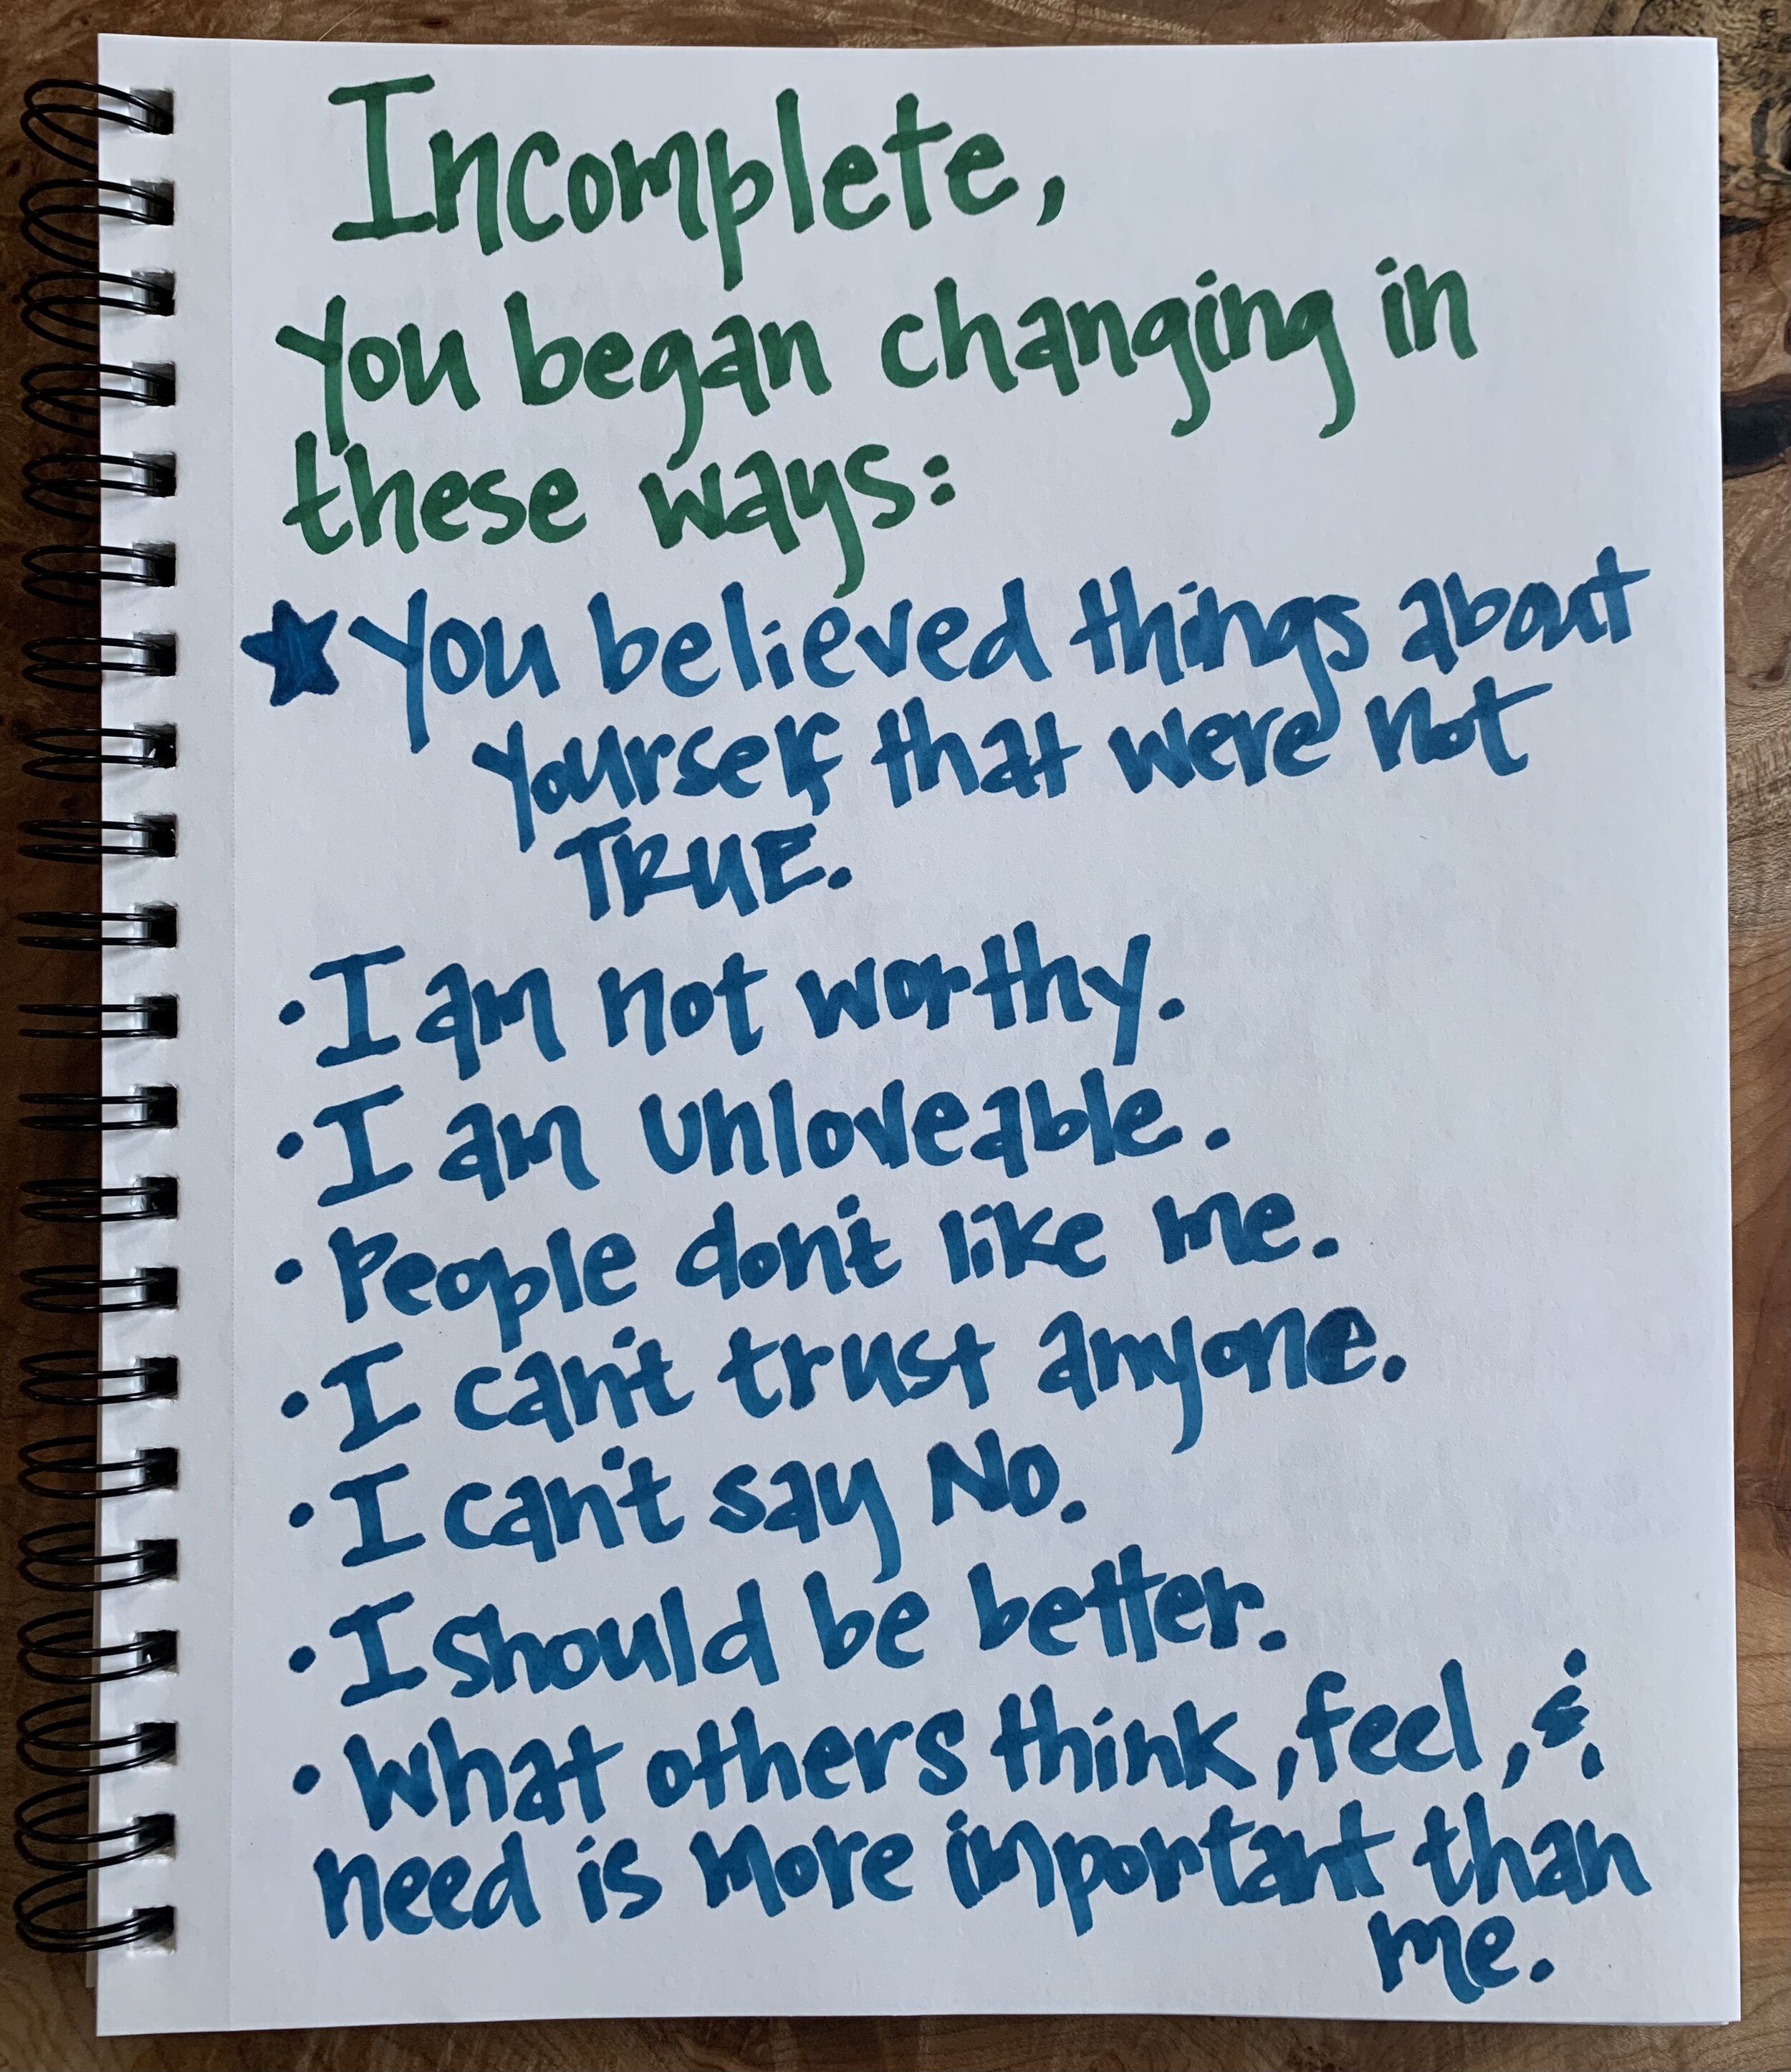 Incomplete,
you began changing in
these ways:
★ You believed things about
yourself that were not
TRUE.
• I am not worthy.
• I am unloveable.
• People don't like me.
• I can't trust anyone.
• I can't say No.
• I should be better.
• What others think, feel, &
need is more important than
me.